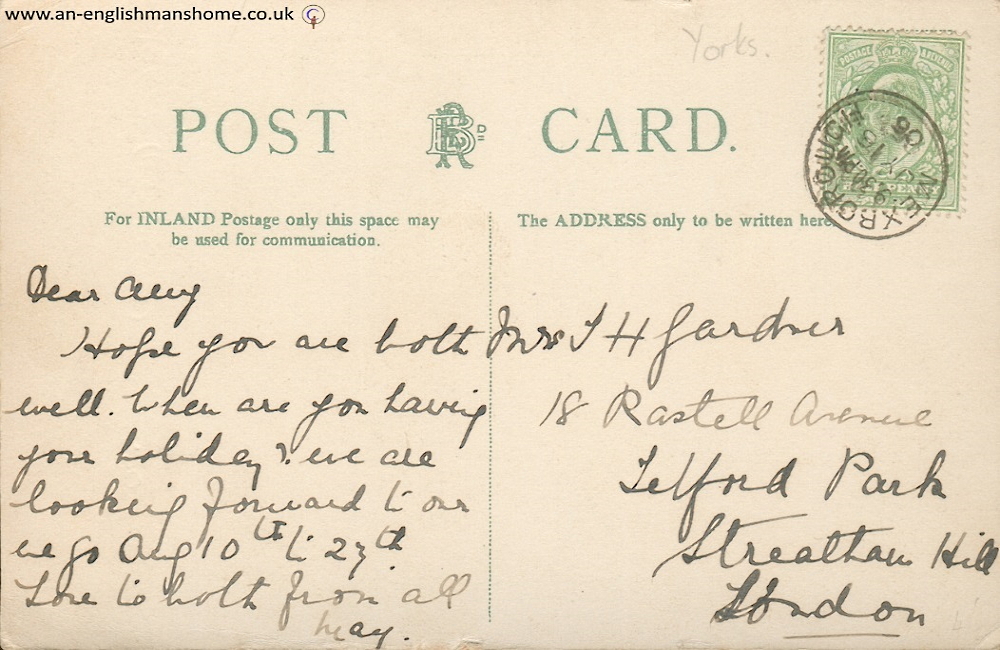 www.an-englishmanshome.co.uk
Yorks.
POSTAGE & REVENUE
POST CARD.
MEXBOROUGH
JY 15
06
HALFPENNY
For INLAND Postage only this space may
be used for communication.
The ADDRESS only to be written here.
Dear Amy
Hope you are both
well. When are you having
your holiday? we are
looking forward to our
we go Aug 10th to 27th
Love to both from all
May.
Mrs T H Gardner
18 Rastell Avenue
Telford Park
Streatham Hill
London